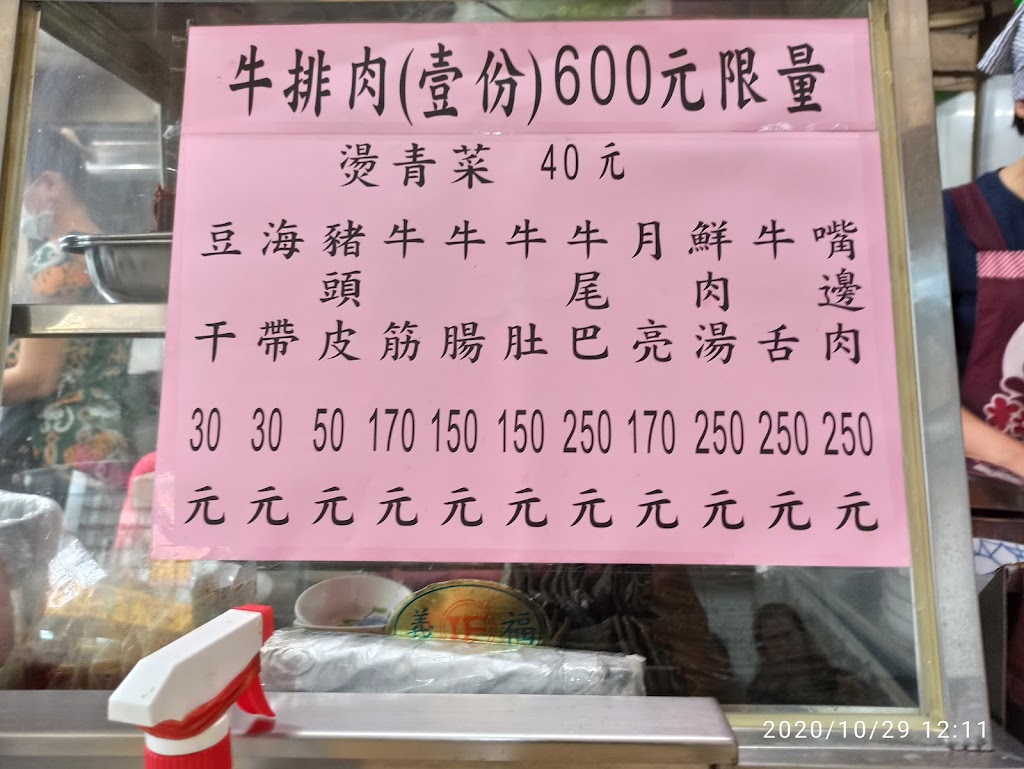 牛排肉(壹份)600元限量
燙青菜 40元
嘴邊肉 250元
牛舌 250元
鮮肉湯 250元
月亮 170元
牛尾巴 250元
牛肚 150元
牛腸 150元
牛筋 170元
豬頭皮 50元
海帶 30元
豆干 30元
義 福
2020/10/29 12:11